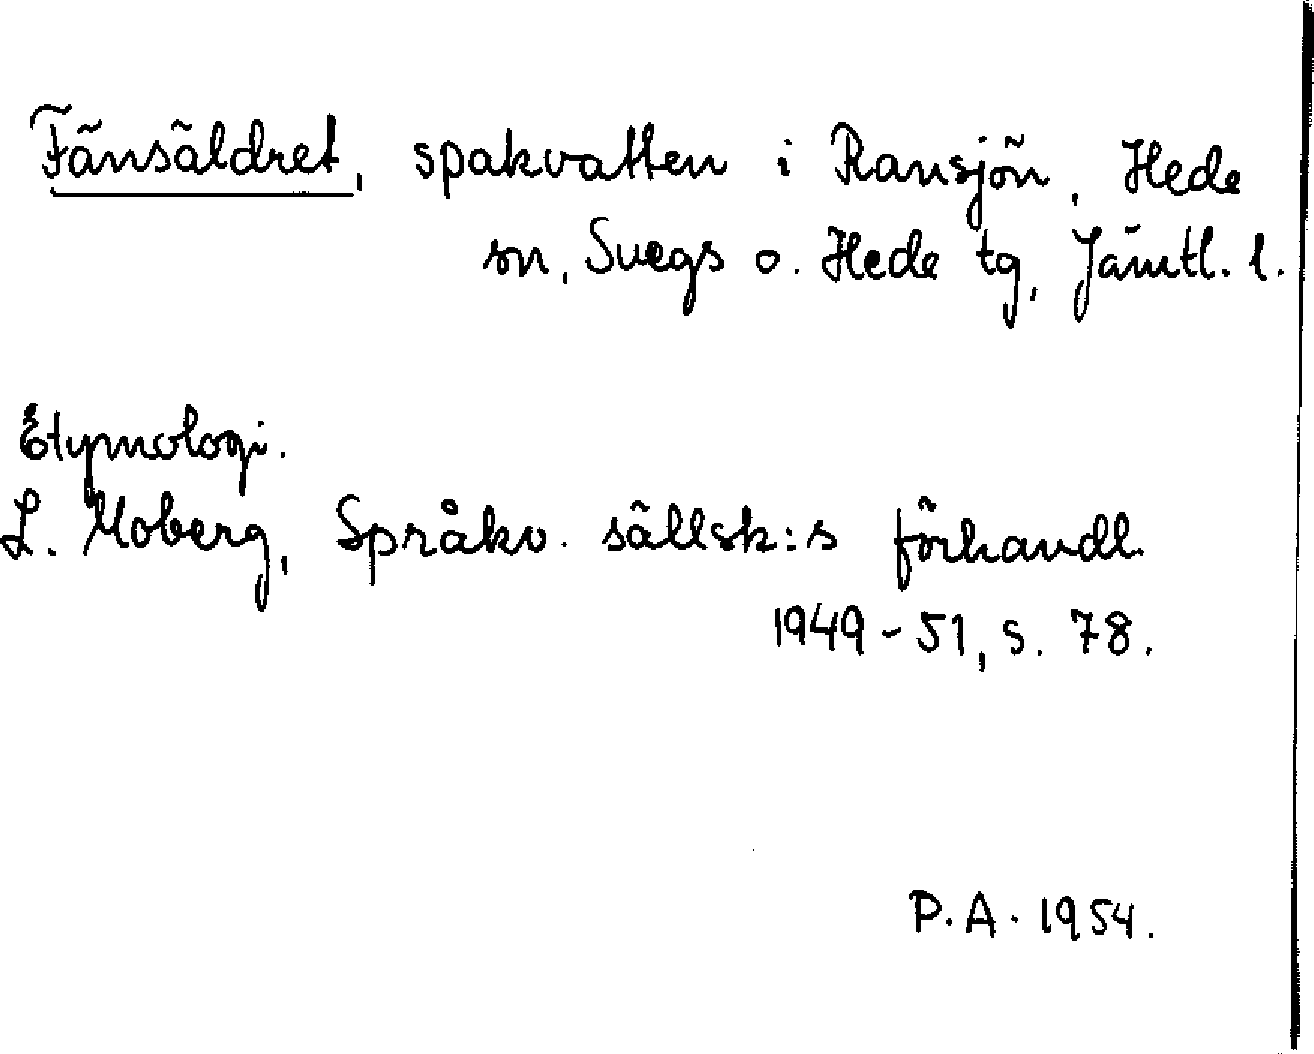 Fänsäldret, spakvatten i Ransjön, Hede
sn, Svegs o. Hede tg, Jämtl. l.
Etymologi.
L. Moberg, Språkv. sällsk:s förhandl.
1949-51, s. 78.
P.A. 1954.